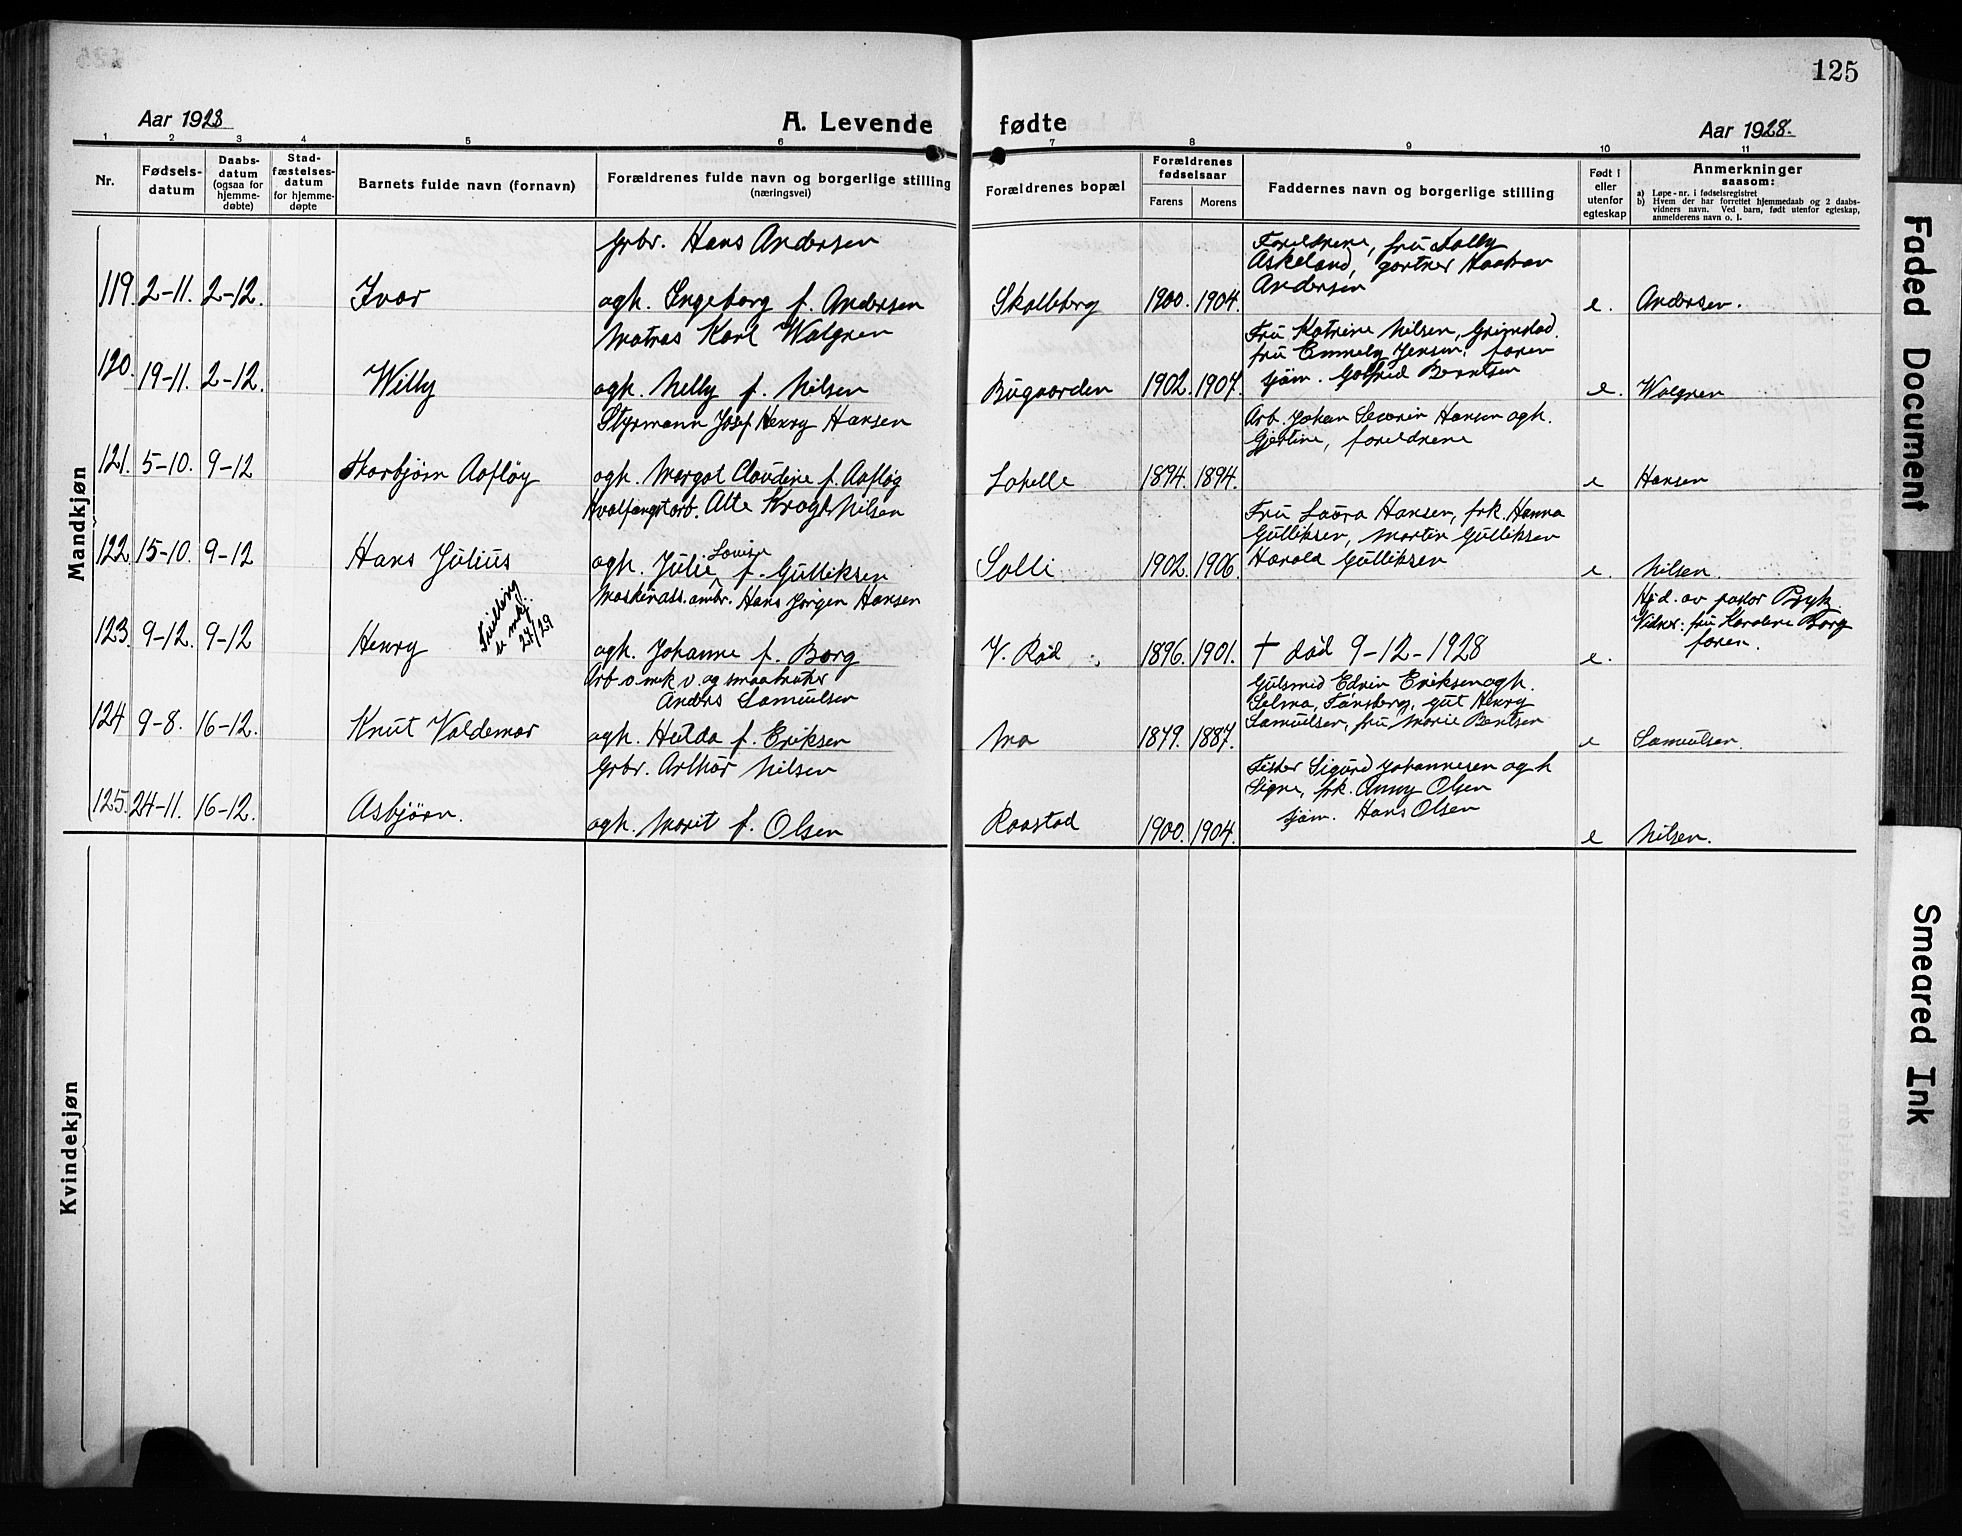 125
Aar 1928
A. Levende fødte
Aar 1928.
1 2 3 4 5 6 7 8 9 10 11
Nr.
Fødsels-
datum
Daabs-
datum
(ogsaa for
hjemme-
døbte)
Stad-
fæstelses-
datum
for hjemme-
døpte
Barnets fulde navn (fornavn)
Forældrenes fulde navn og borgerlige stilling
(næringsvei)
Forældrenes bopæl
Forældrenes
fødselsaar
Farens Morens
Faddernes navn og borgerlige stilling
Født i
eller
utenfor
egteskap
Anmerkninger
saasom:
a) Løpe-nr. i fødselsregistret
b) Hvem der har forrettet hjemmedaab og 2 daabs-
vidners navn. Ved barn, født utenfor egteskap,
anmelderens navn o. l.
Mandkjøn
119. 2-11. 2-12. Ivar
Grbr. Hans Andersen
ogh. Ingeborg f. Andersen
Skalleberg 1900. 1904.
Foreldrene, fru
Askeland, gartner
Andersen
e. Andersen.
120. 19-11. 2-12. Willy
Matros Karl Walgren
ogh. Nelly f. Nilsen
Bugaarden 1902. 1907.
Fru Katrine Nilsen, Grimstad.
fru Emmely Jensen, faren
sjøm. Gotfred Berntsen
e. Walgren
121. 5-10. 9-12 Thorbjørn Aafløy
Styrmann Josef Henry Hansen
ogh. Margot Claudine f. Aafløy
Lahelle 1894. 1894.
Arb. Johan Severin Hansen ogh.
Gjertine, foreldrene
e Hansen
122. 15-10. 9-12 Hans Julius
Hvalfangstarb. Atle Krogh Nilsen
ogh. Julie Lovise f. Gulliksen
Solli 1902. 1906.
Fru Laura Hansen, frk. Hanna
Gulliksen, Martin Gulliksen
Harald Gulliksen
e. Nilsen.
123. 9-12. 9-12 Henry
Tvilling
m. mkj.
27/29
Maskinass. ombr. Hans Jørgen Hansen
ogh. Johanne f. Borg
V. Rød 1896. 1901.
† død 9-12-1928
e.
Hjd. av pastor Bryk
Vidner: fru Karoline Borg
faren.
124 9-8. 16-12. Knut Valdemar
Arb o. mek v. og smaabruker
Anders Samuelsen
ogh. Hulda f. Eriksen
Mo 1879. 1887.
Gulsmed Edvin Eriksen ogh.
Selma, Tønsberg, gut Henry
Samuelsen, fru Marie Bentsen
e Samuelsen.
125. 24-11. 16-12. Asbjørn.
Grbr. Arthur Nilsen
ogh. Marit f. Olsen
Raastad 1900. 1904.
Fisker Sigurd Johannesen ogh
Signe, frk. Anny Olsen
sjøm. Hans Olsen
e Nilsen.
Kvindekjøn
Faded Document
Smeared Ink